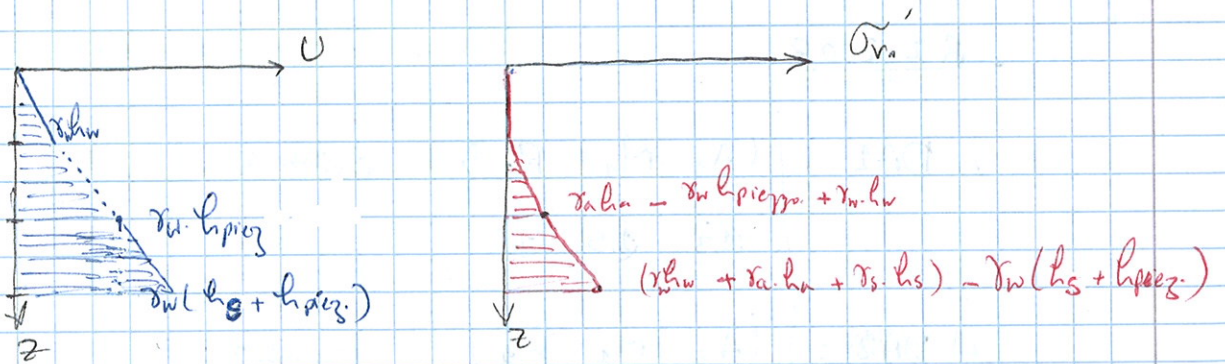 U
γw hw
γw. hpiez
γw( hs + hpiez.)
z
σv'
γa ha - γw hpiezo. + γw. hw
(γw hw + γa. ha + γs. hs) - γw (hs + hpiez.)
z